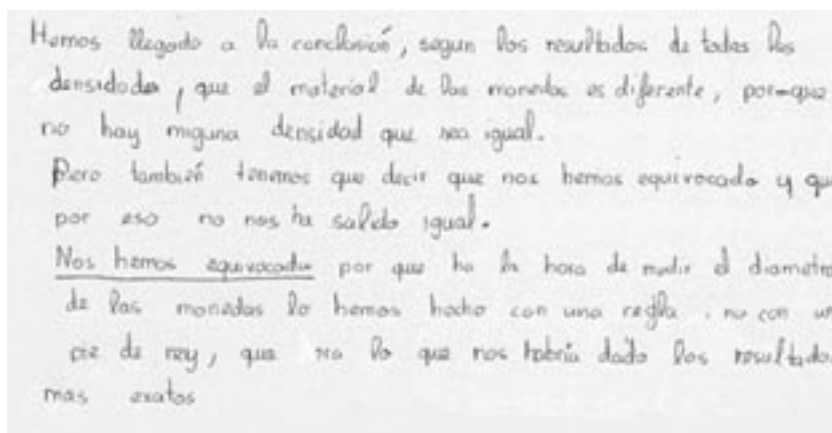 Hemos llegado a la conclusión, segun los resultados de todas las
densidades, que el material de las monedas es diferente, por-que
no hay miguna densidad que sea igual.
Pero también tenemos que decir que nos hemos equivocado y que
por eso no nos ha salido igual.
Nos hemos equivocado por que ha la hora de medir el diametro
de las monedas lo hemos hecho con una regla . no con un
pie de rey, que era lo que nos habria dado los resultados
mas exatos